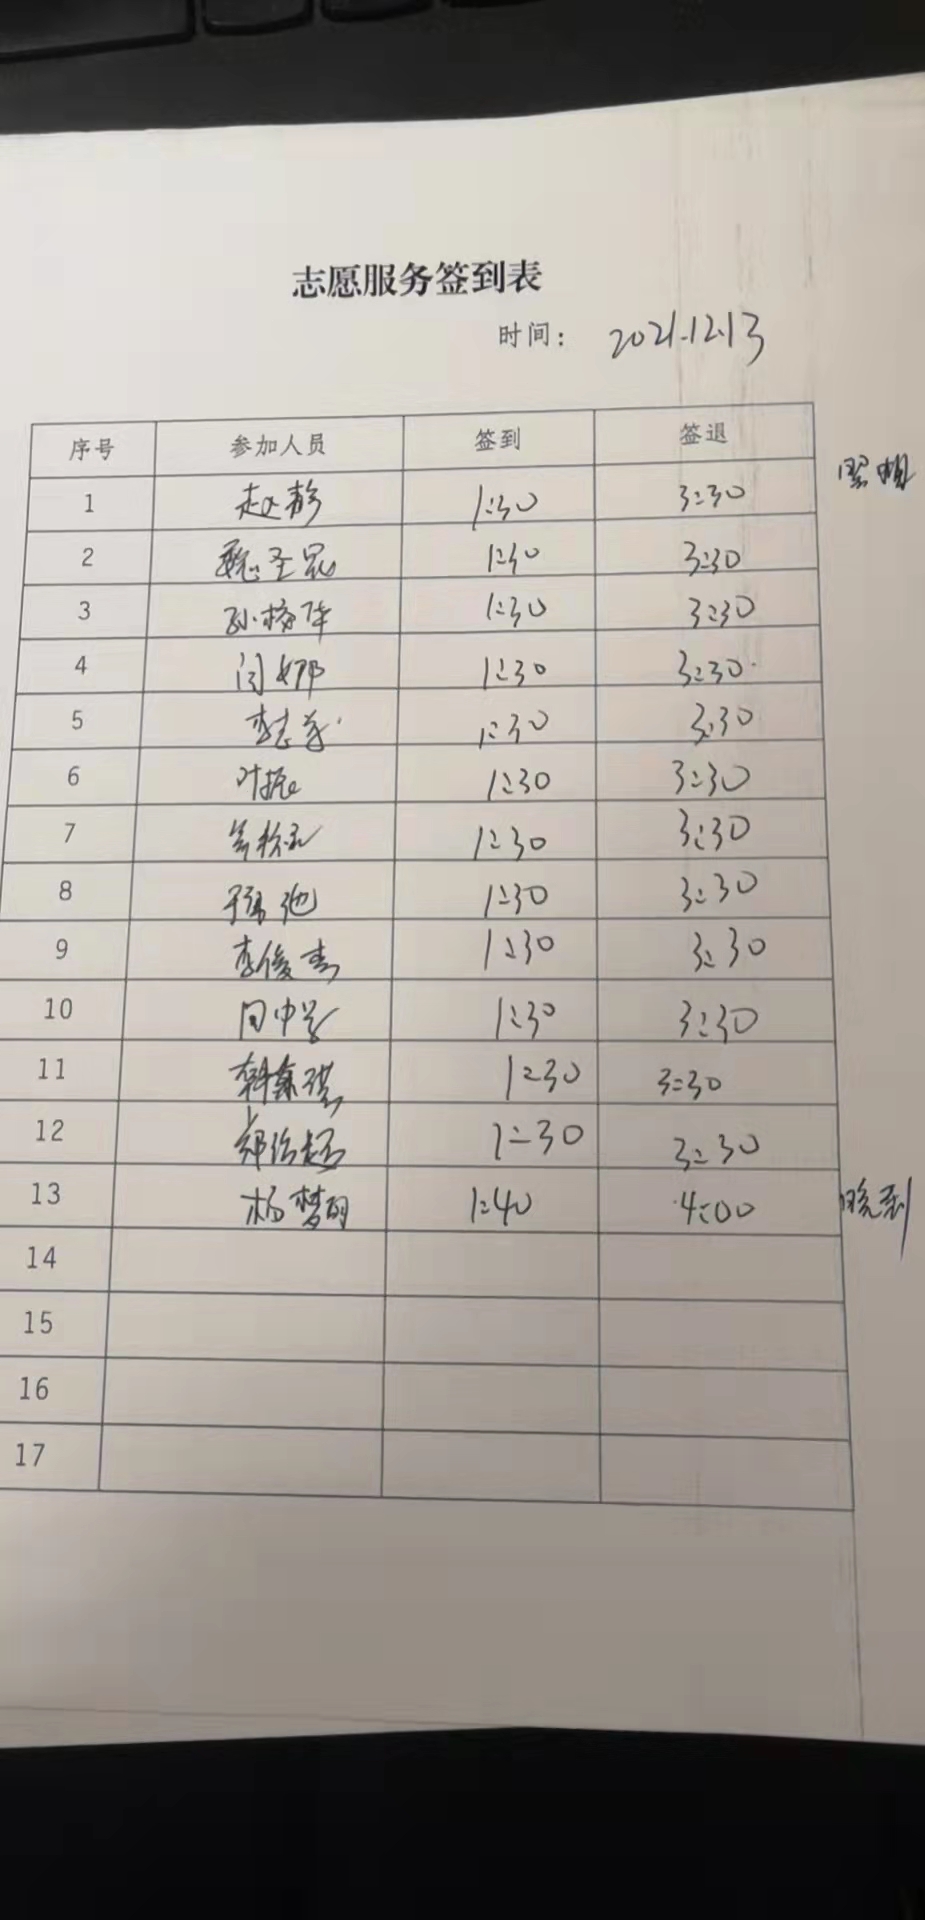 志愿服务签到表
时间： 2021.12.13
序号 参加人员 签到 签退
1 赵静 1:30 3:30
2 魏圣昆 1:30 3:30
3 孙梅华 1:30 3:30
4 闫娜 1:30 3:30
5 李志 1:30 3:30
6 叶振 1:30 3:30
7 1:30 3:30
8 1:30 3:30
9 李俊 1:30 3:30
10 田中 1:30 3:30
11 韩 1:30 3:30
12 郑 1:30 3:30
13 杨梦 1:40 4:00 晚到
14
15
16
17